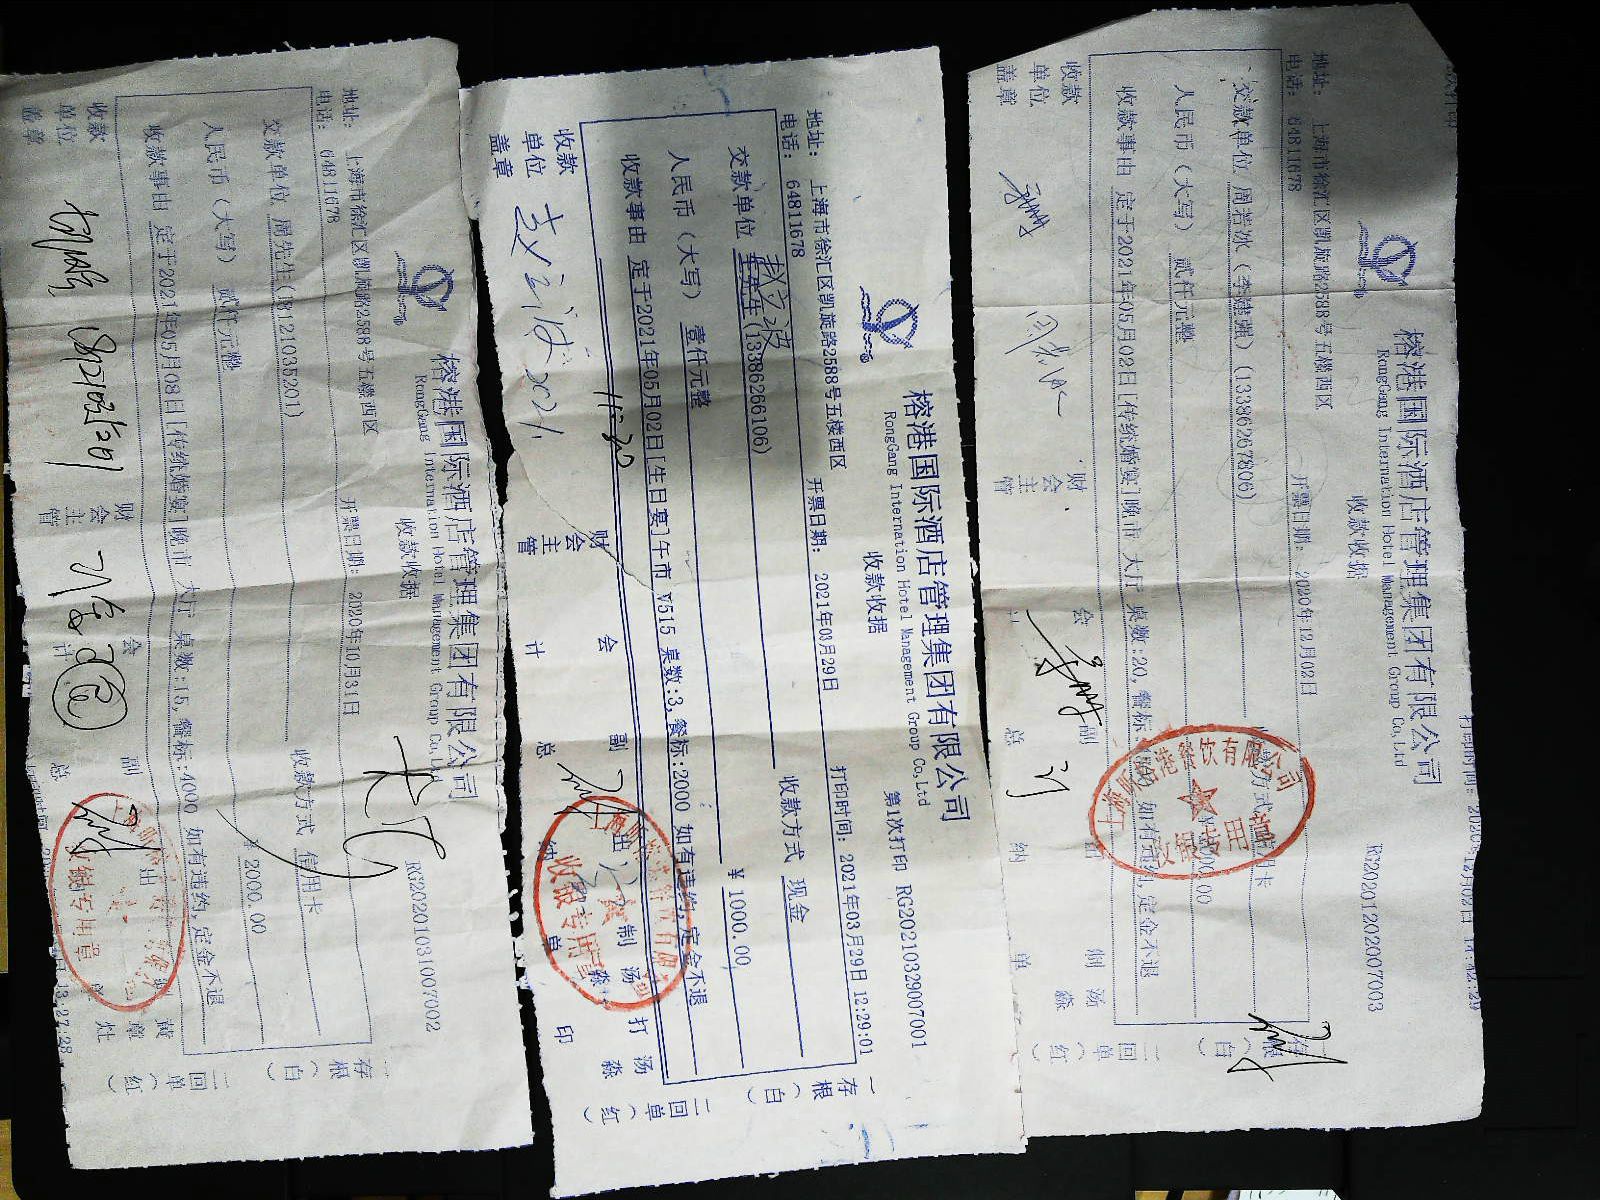 榕港国际酒店管理集团有限公司
RongGang International Hotel Management Group Co,Ltd
收款收据
RG20201031007002
地址： 上海市徐汇区凯旋路2588号五楼西区
电话： 64811678
开票日期： 2020年10月31日
交款单位 周先生(18121035201)
收款方式 信用卡
人民币（大写） 贰仟元整
￥2000.00
收款事由 定于2021年05月08日[传统婚宴]晚市 大厅 桌数:15,餐标:4000 如有违约,定金不退
收款单位盖章
财会主管
会计
副总
出
黄章灶
13:27:28
一存根（白）
二回单（红）
18121035201
榕港国际酒店管理集团有限公司
RongGang International Hotel Management Group Co,Ltd
收款收据
第1次打印 RG20210329007001
地址： 上海市徐汇区凯旋路2588号五楼西区
电话： 64811678
开票日期： 2021年03月29日
打印时间：2021年03月29日12:29:01
交款单位 (13386266106)
收款方式 现金
人民币（大写） 壹仟元整
￥1000.00
收款事由 定于2021年05月02日[生日宴]午市 V515 桌数:3,餐标:2000 如有违约,定金不退
收款单位盖章
财会主管
会计
副总
出纳
制单 汤淼
打印 汤淼
一存根（白）
二回单（红）
收据专用章
榕港国际酒店管理集团有限公司
RongGang International Hotel Management Group Co,Ltd
收款收据
RG20201202007003
打印时间：2020年12月02日 14:42:29
地址： 上海市徐汇区凯旋路2588号五楼西区
电话： 64811678
开票日期： 2020年12月02日
交款单位 周若冰（李楚强）(13386267806)
人民币（大写） 贰仟元整
收款事由 定于2021年05月02日[传统婚宴]晚市 大厅 桌数:20,餐标: 如有违约,定金不退
收款单位盖章
财会主管
会计
副总
出纳
制单 汤淼
存根（白）
二回单（红）